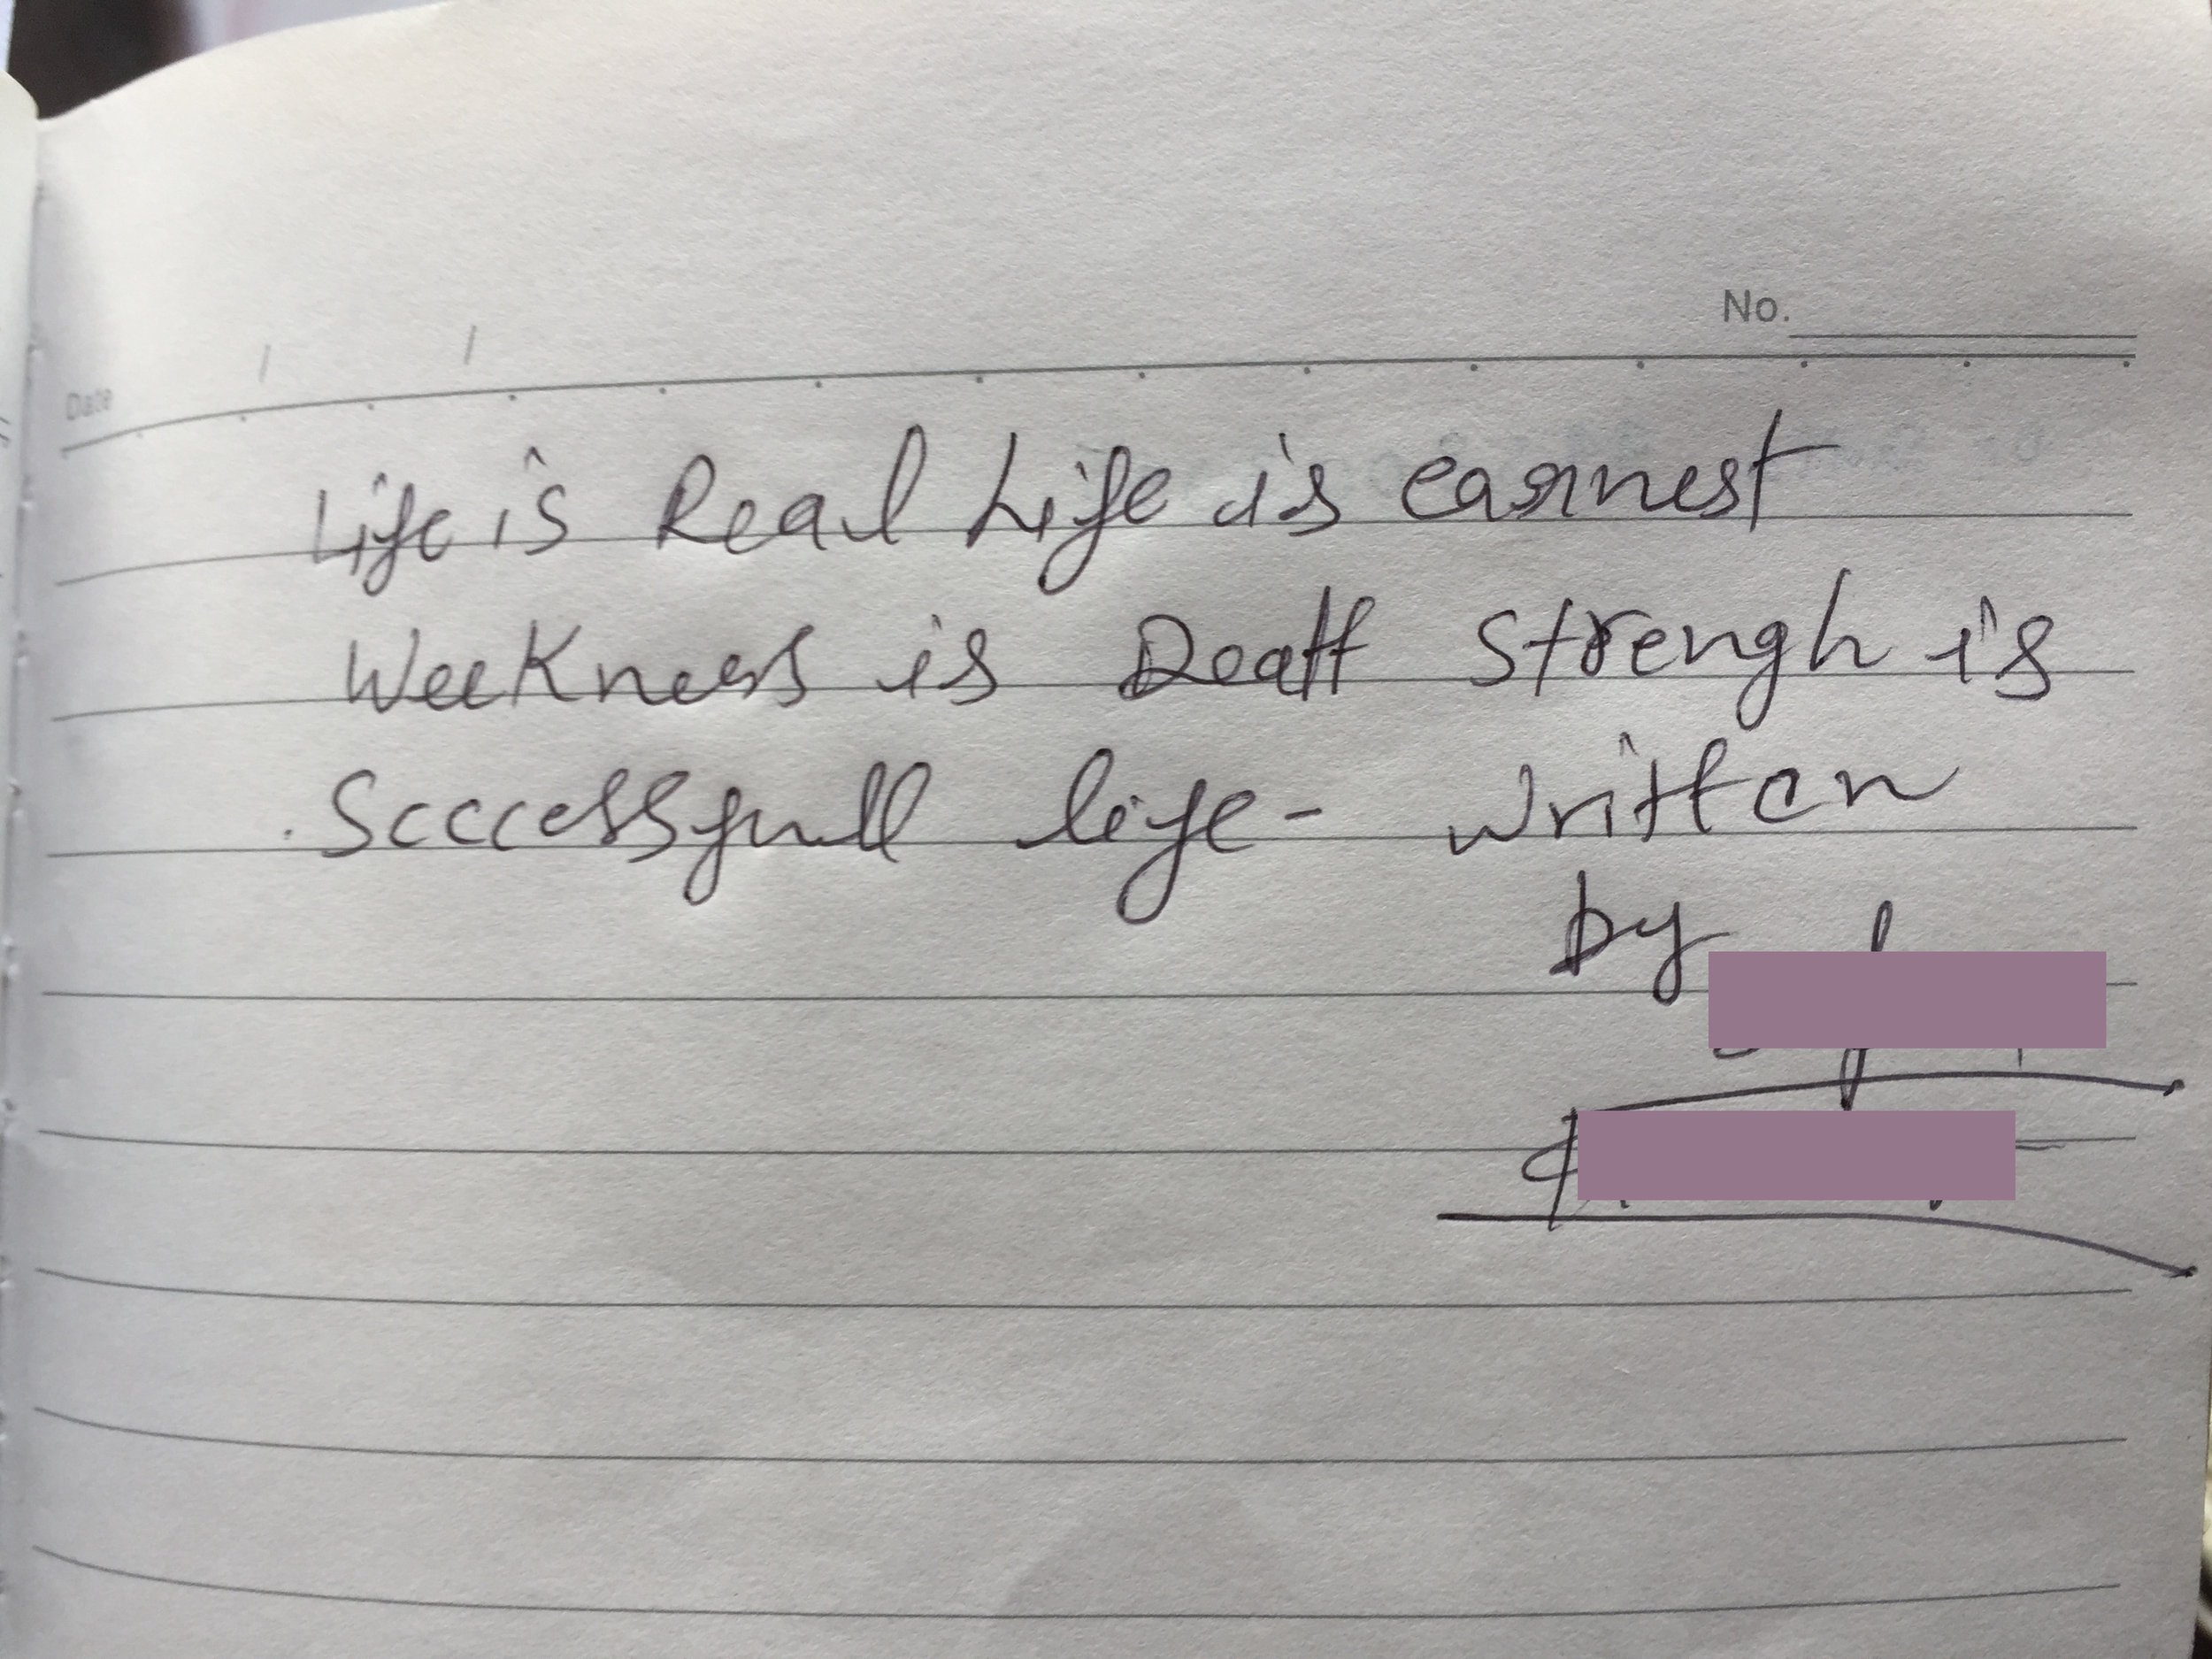 No.
Date / /
Life is Real Life is earnest
Weekness is Death Strengh is
Scccessfull life - written
by